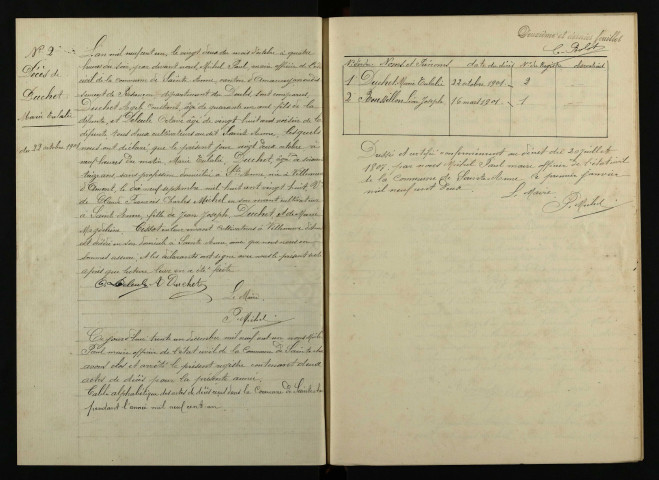 N° 2
Décès de
Duchet
Marie Eulalie
du 22 octobre 1901
L'an mil neuf cent un, le vingt deux du mois d'octobre à quatre
heures du soir, par devant nous, Michel Paul, maire officier de l'état
civil de la commune de Sainte Anne, canton d'Amancey, arrondis
sement de Besançon, département du Doubs, sont comparus
Duchet Ange âgé de quarante un ans fils de la
défunte, et âgé de vingt huit ans voisin de la
défunte tous deux cultivateurs à Sainte Anne, lesquels
nous ont déclaré que le présent jour vingt deux octobre à
neuf heures du matin, Marie Eulalie Duchet, âgée de soixante
treize ans sans profession domiciliée à Ste Anne, née à Villeneuve
d'Amont, le dix neuf septembre mil huit cent vingt huit, Vve
de Claude François Charles Michel en son vivant cultivateur
à Sainte Anne, fille de Jean Joseph Duchet et de Marie
en leur vivant cultivateurs à Villeneuve d'Amont
est décédée en son domicile à Sainte Anne, ainsi que nous nous en
sommes assuré, et les déclarants ont signé avec nous le présent acte
après que lecture leur en a été faite.
A. Duchet
Le Maire,
P. Michel
Ce jourd'hui trente un décembre mil neuf cent un nous Michel
Paul maire officier de l'état civil de la Commune de Sainte Anne
avons clos et arrêté le présent registre contenant deux
actes de décès pour la présente année.
Table alphabétique des actes de décès reçus dans la Commune de Sainte Anne
pendant l'année mil neuf cent un.
Deuxième et dernier feuillet
Noms et Prénoms date du décès N° du Registre
1 Duchet Marie Eulalie 22 octobre 1901 2
2 Léon Joseph 16 mai 1901 1
Dressé et certifié conformément au décret du 20 juillet
1807, par nous Michel Paul maire officier de l'état civil
de la Commune de Sainte Anne le premier janvier
mil neuf cent deux
Le Maire
P. Michel